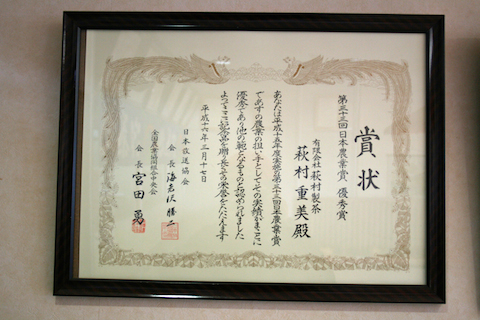 賞状
第三十三回日本農業賞 優秀賞
有限会社萩村製茶
萩村重美殿
あなたは平成十五年度実施の第三十三回日本農業賞
であすの農業の担い手としてその実績がまことに
優秀であり他の範となるものと認められました
よってここに記念品を贈り長くその栄誉をたたえます
平成十六年三月十七日
日本放送協会
会長 海老沢勝二
全国農業協同組合中央会
会長 宮田勇